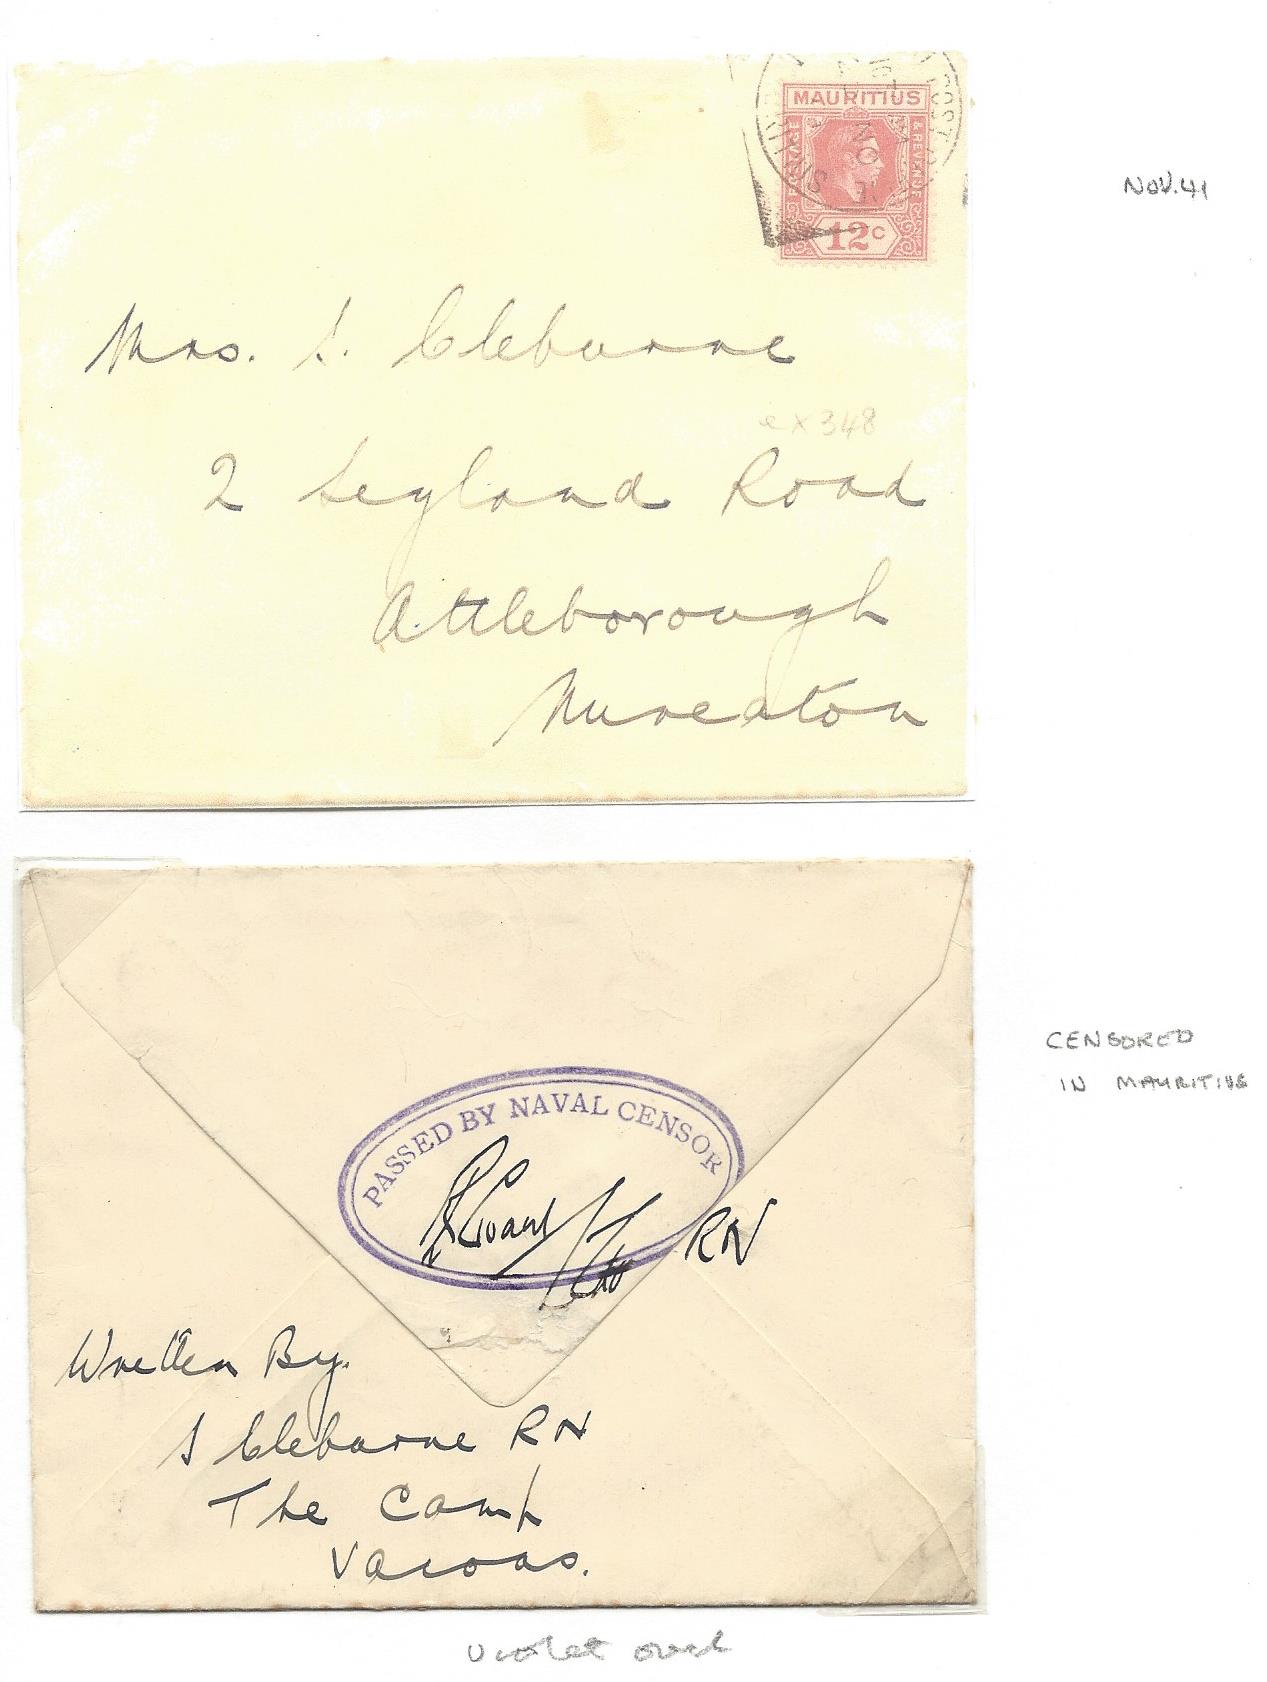 MAURITIUS
POSTAGE
& REVENUE
12c
NOV. 41
Mrs. S. Cleburne
ex 348
2 Leyland Road
Attleborough
Nuneaton
CENSORED
IN MAURITIUS
PASSED BY NAVAL CENSOR
RN
Written By.
S Cleburne RN
The Camp
Vacoas.
Violet oval